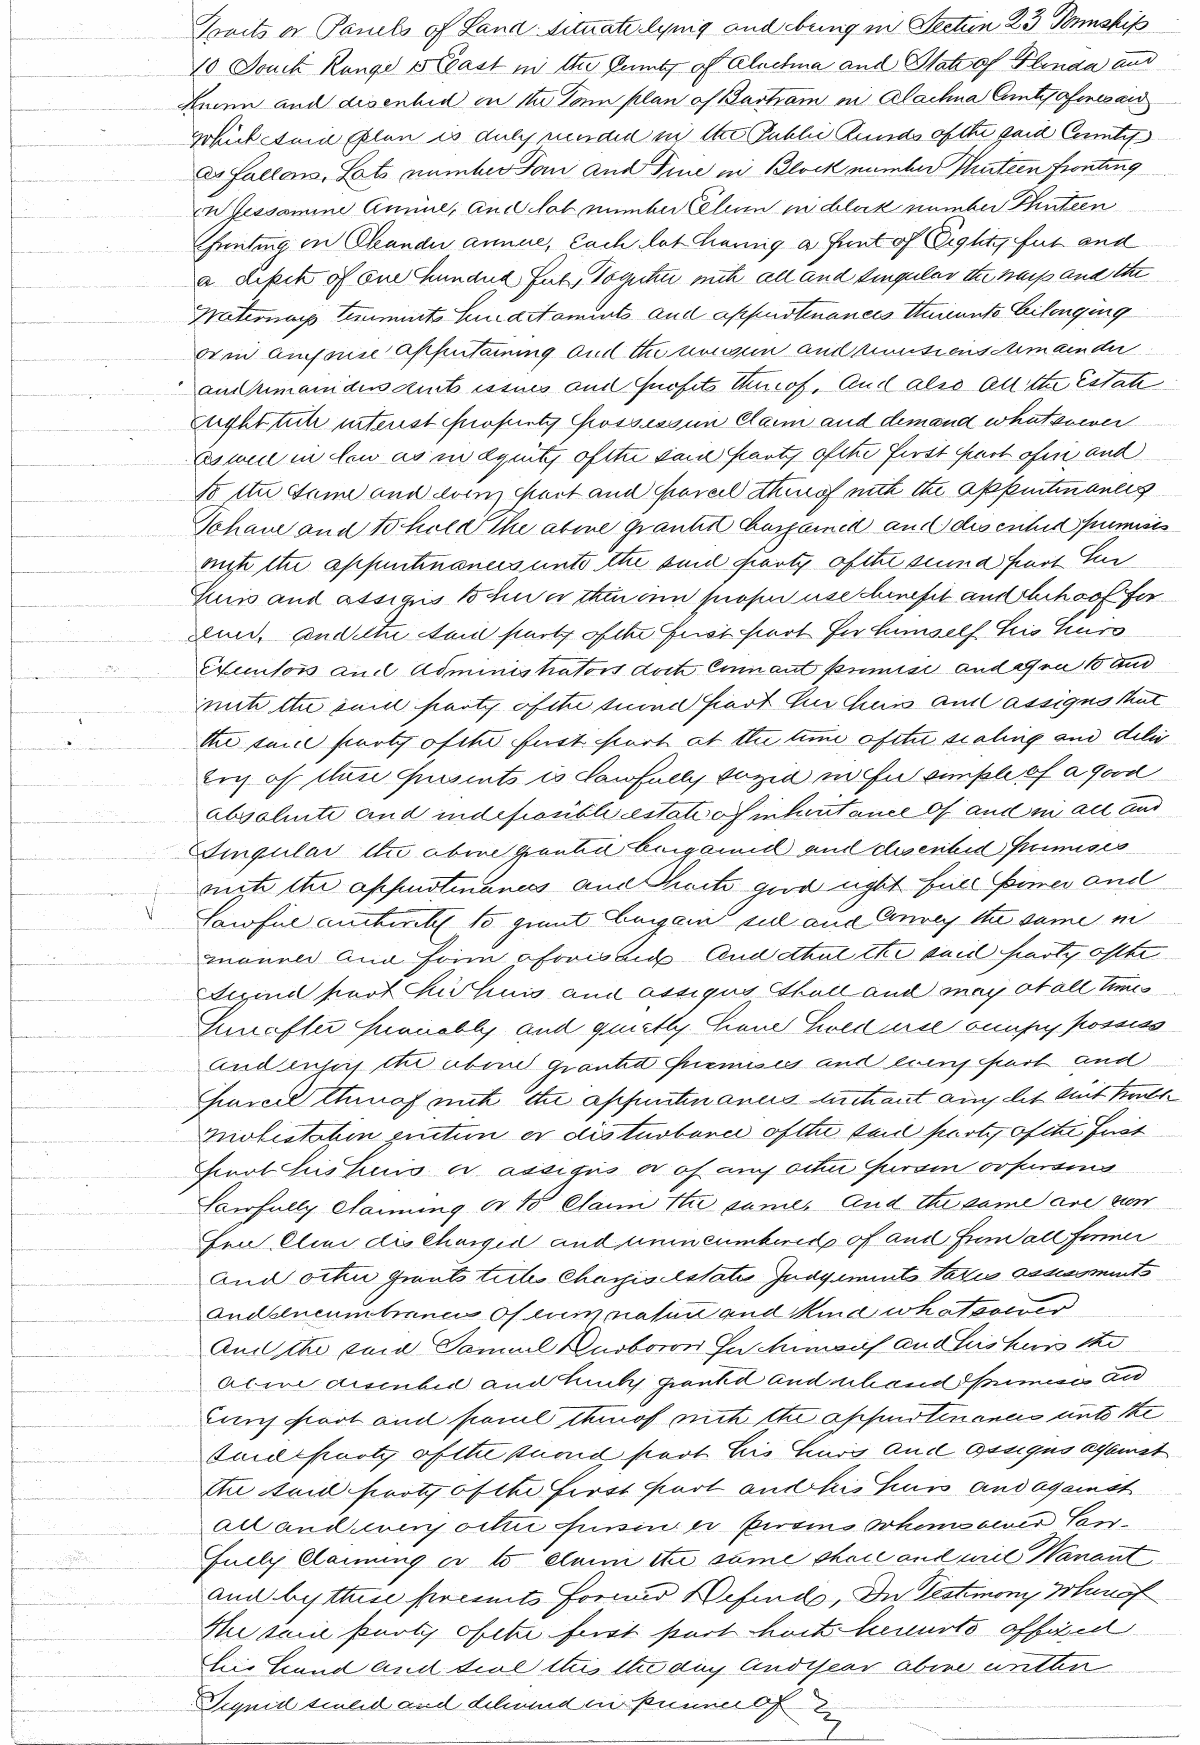 Tracts or Parcels of Land situate lying and being in Section 23 Township
10 South Range 15 East in the County of Alachua and State of Florida and
Known and described on the Town plan of Bartram in Alachua County aforesaid
which said plan is duly recorded in the Public Records of the said County
as follows, Lots number Four and Five in Block number Thirteen fronting
on Jessamine Avenue, and lot number Eleven in block number Thirteen
fronting on Oleander avenue, Each lot having a front of Eighty feet and
a depth of one hundred feet, Together with all and singular the ways and the
Waterways tenements hereditaments and appurtenances thereunto belonging
or in any wise appertaining and the reversion and reversions remainder
and remainders rents issues and profits thereof. And also all the Estate
right title interest property possession Claim and demand whatsoever
as well in law as in equity of the said party of the first part of in and
to the same and every part and parcel thereof with the appurtenances
To have and to hold the above granted bargained and described premises
with the appurtenances unto the said party of the second part her
heirs and assigns to her or their own proper use benefit and behoof for
ever. and the said party of the first part for himself his heirs
Executors and Administrators doth Covenant promise and agree to and
with the said party of the second part her heirs and assigns that
the said party of the first part at the time of the sealing and deliv
ery of these presents is lawfully seized in fee simple of a good
absolute and indefeasible estate of inheritance of and in all and
Singular the above granted bargained and described premises
with the appurtenances and hath good right full power and
lawful authority to grant bargain sell and Convey the same in
manner and form aforesaid And that the said party of the
second part her heirs and assigns shall and may at all times
hereafter peaceably and quietly have hold use occupy possess
and enjoy the above granted premises and every part and
parcel thereof with the appurtenances without any let suit trouble
molestation eviction or disturbance of the said party of the first
part his heirs or assigns or of any other person or persons
lawfully claiming or to Claim the same. And the same are now
free Clear discharged and unincumbered of and from all former
and other grants titles Charges estates Judgements taxes assessments
and encumbrances of every nature and Kind whatsoever
And the said Samuel Durborow for himself and his heirs the
above described and hereby granted and released premises and
every part and parcel thereof with the appurtenances unto the
said party of the second part his heirs and assigns against
the said party of the first part and his heirs and against
all and every other person or persons whomsoever law-
fully Claiming or to claim the same shall and will Warrant
and by these presents forever Defend, In Testimony Whereof
the said party of the first part hath hereunto affixed
his hand and seal this the day and year above written
Signed sealed and delivered in presence of